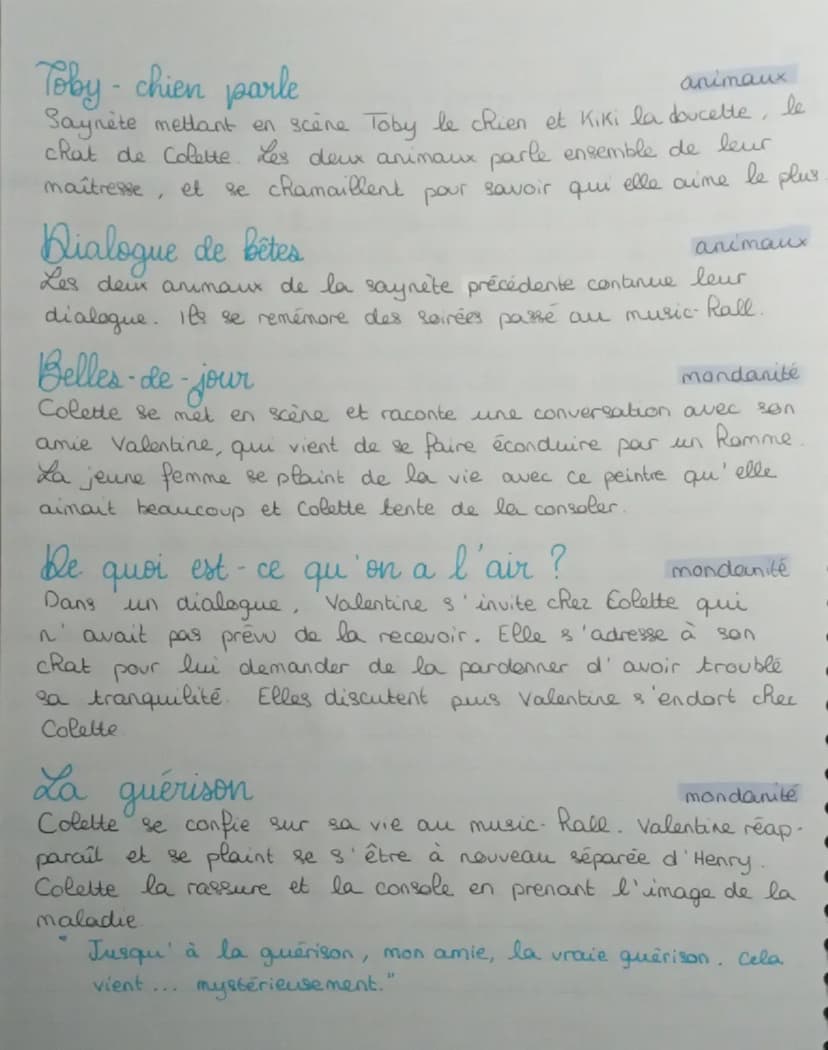 Toby - chien parle animaux
Saynète mettant en scène Toby le chien et Kiki la doucette, le
chat de Colette. Les deux animaux parle ensemble de leur
maîtresse, et se chamaillent pour savoir qui elle aime le plus.
Dialogue de bêtes animaux
Les deux animaux de la saynète précédente continue leur
dialogue. Ils se remémore des soirées passé au music-hall.
Belles-de-jour mondanité
Colette se met en scène et raconte une conversation avec son
amie Valentine, qui vient de se faire éconduire par un homme.
La jeune femme se plaint de la vie avec ce peintre qu'elle
aimait beaucoup et Colette tente de la consoler.
De quoi est-ce qu'on a l'air ? mondanité
Dans un dialogue, Valentine s'invite chez Colette qui
n'avait pas prévu de la recevoir. Elle s'adresse à son
chat pour lui demander de la pardonner d'avoir troublé
sa tranquilité. Elles discutent puis Valentine s'endort chez
Colette
La guérison mondanité
Colette se confie sur sa vie au music-hall. Valentine réap-
paraît et se plaint se s'être à nouveau séparée d'Henry.
Colette la rassure et la console en prenant l'image de la
maladie
" Jusqu'à la guérison, mon amie, la vraie guérison. Cela
vient... mystérieusement."